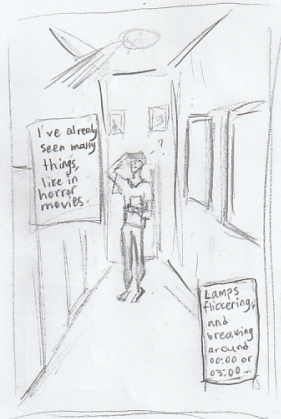 I've already
seen many
things,
like in
horror
movies.
?
Lamps
flickering,
and
breaking
around
00:00 or
03:00 –